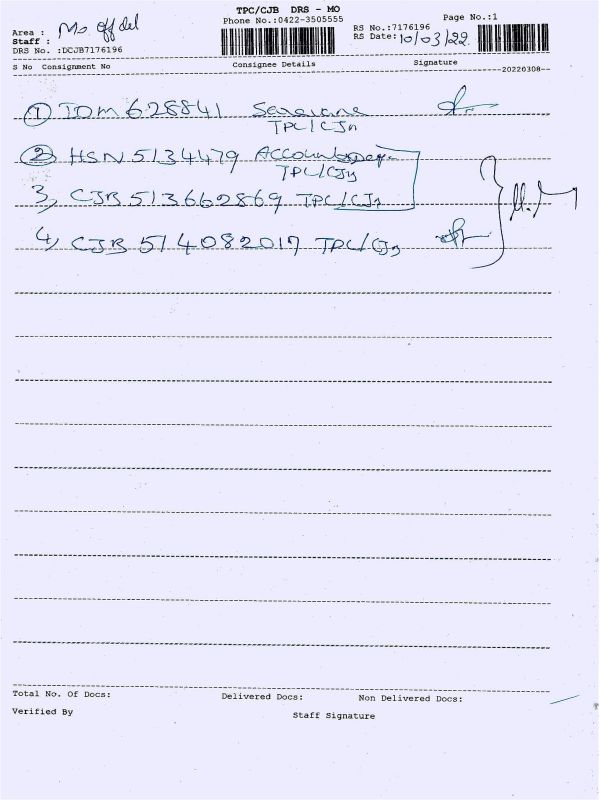 TPC/CJB DRS - MO
Phone No.:0422-3505555
Page No.:1
Area : Mo off del
RS No.:7176196
Staff :
RS Date: 10/03/22
DRS No. :DCJB7176196
S No Consignment No Consignee Details Signature
20220308--
1 IDM 628841 Saravana
TPC/CJB
2 HSN 5134479 Accounts
TPC/CJB
3, CJB 513662869 TPC/CJB
4, CJB 514082017 TPC/CJB
Total No. Of Docs: Delivered Docs: Non Delivered Docs:
Verified By
Staff Signature